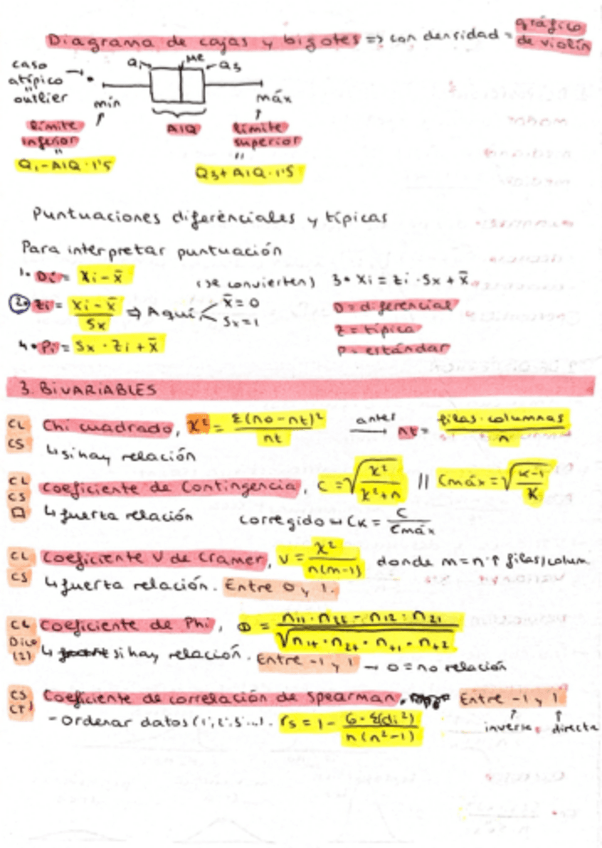 Diagrama de cajas y bigotes => con densidad = gráfico de violín
caso atípico " outlier
Q1 Me Q3
mín máx
límite inferior AIQ límite superior
" "
Q1-AIQ·1'5 Q3+AIQ·1'5
Puntuaciones diferenciales y típicas
Para interpretar puntuación
1. Di = Xi - x̄ (se convierten) 3. Xi = Zi · Sx + x̄
2. Zi = Xi - x̄ / Sx => Aquí, x̄ = 0 Sx = 1
D = diferencial
Z = típica
4. Pi = Sx · Zi + x̄
P = estándar
3. BIVARIABLES
CL CS Chi cuadrado, X² = Σ(no-nt)² / nt antes → nt = filas·columnas / n
↳ si hay relación
CL CS □ Coeficiente de Contingencia, C = √(X² / X²+n) || Cmáx = √(K-1 / K)
↳ fuerza relación corregido ↔ CK = C / Cmáx
CL CS Coeficiente V de Cramer, V = X² / n(m-1) donde m = nº filas/colum
↳ fuerza relación. Entre 0 y 1.
CL Dico (2) Coeficiente de Phi, Φ = n11·n22 - n12·n21 / √(n1+·n2+·n+1·n+2)
↳ si hay relación. Entre -1 y 1 → 0 = no relación
CS CT) Coeficiente de correlación de Spearman. Entre -1 y 1
inversa directa
- Ordenar datos (1', 2'5...). rs = 1 - 6·Σ(di²) / n(n²-1)